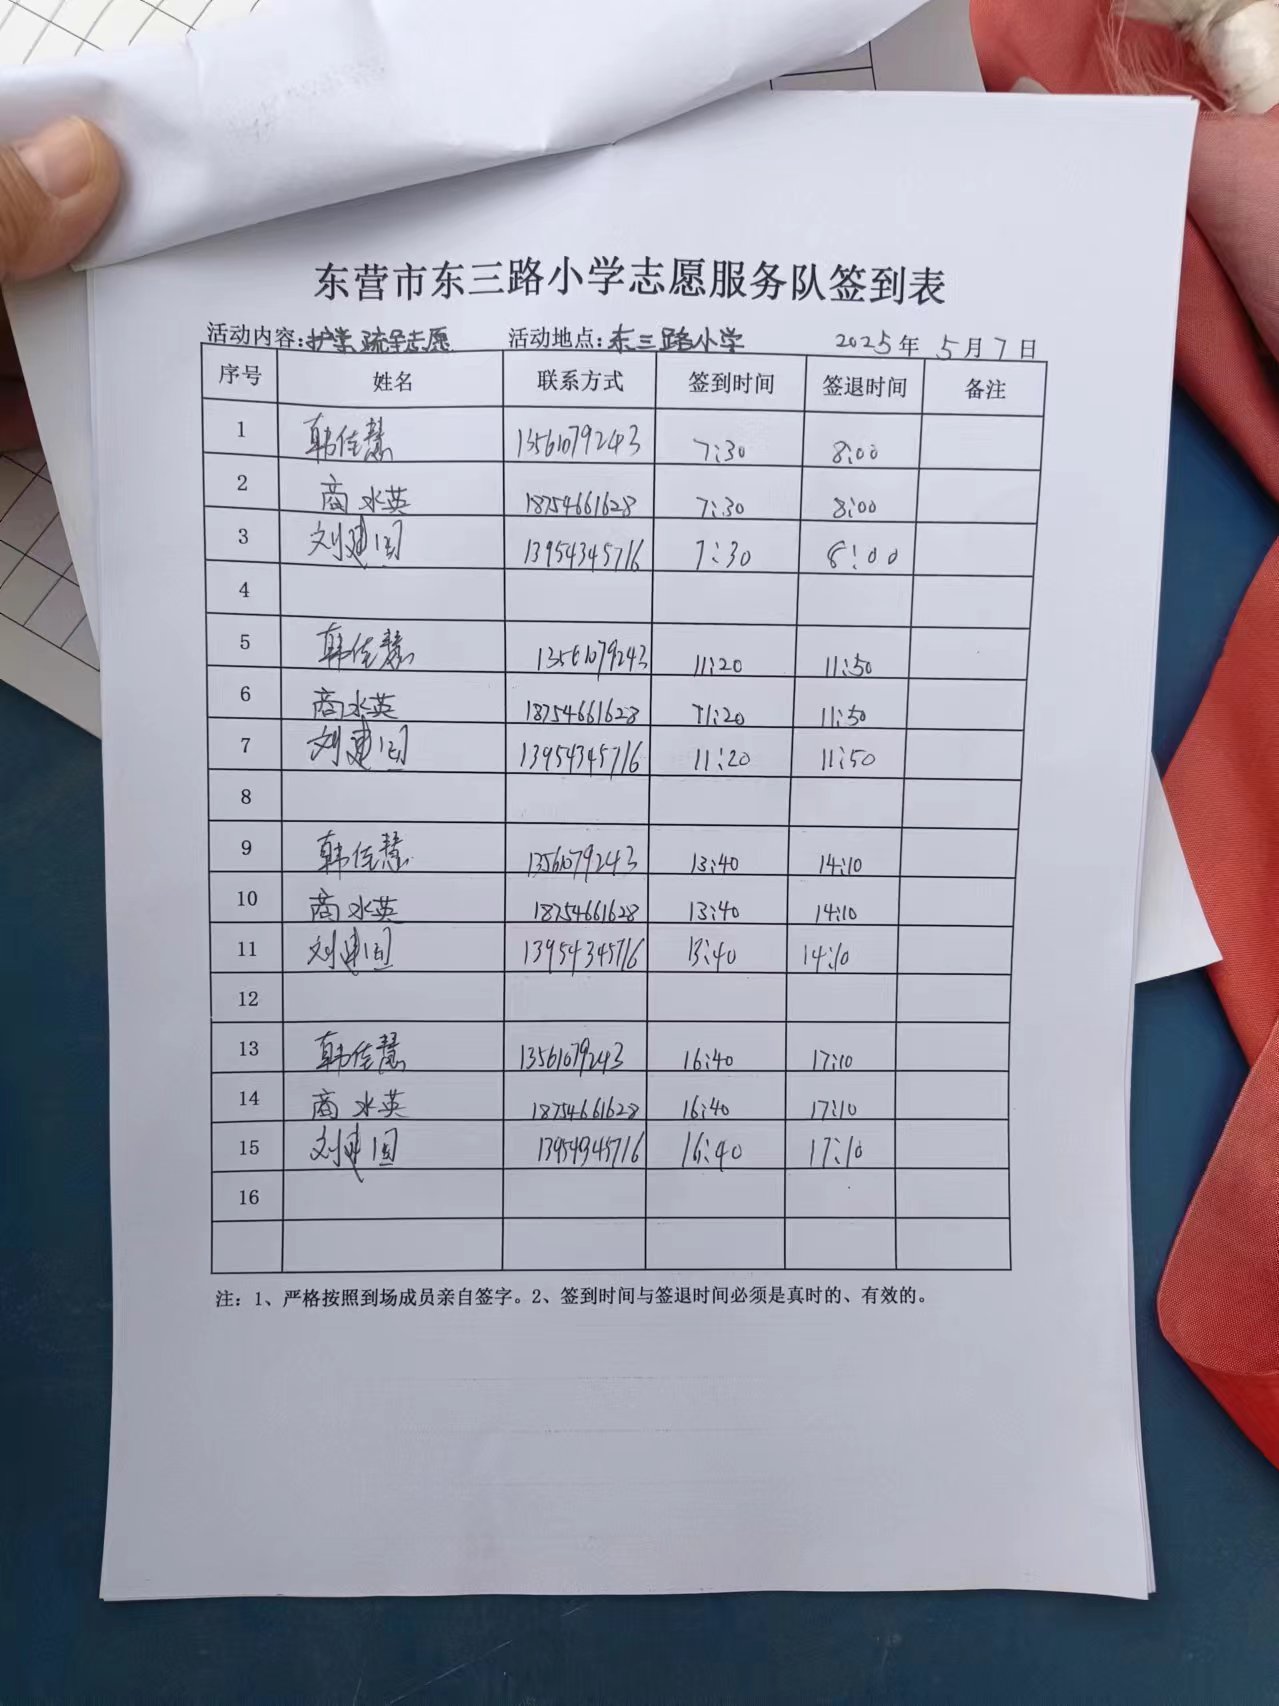 东营市东三路小学志愿服务队签到表
活动内容:护学疏导志愿 活动地点:东三路小学 2025年 5月7日
序号 姓名 联系方式 签到时间 签退时间 备注
1 韩佳慧 13561079243 7:30 8:00
2 商水英 18754661628 7:30 8:00
3 刘建国 13954345716 7:30 8:00
4
5 韩佳慧 13561079243 11:20 11:50
6 商水英 18754661628 11:20 11:50
7 刘建国 13954345716 11:20 11:50
8
9 韩佳慧 13561079243 13:40 14:10
10 商水英 18754661628 13:40 14:10
11 刘建国 13954345716 13:40 14:10
12
13 韩佳慧 13561079243 16:40 17:10
14 商水英 18754661628 16:40 17:10
15 刘建国 13954345716 16:40 17:10
16
注：1、严格按照到场成员亲自签字。2、签到时间与签退时间必须是真时的、有效的。